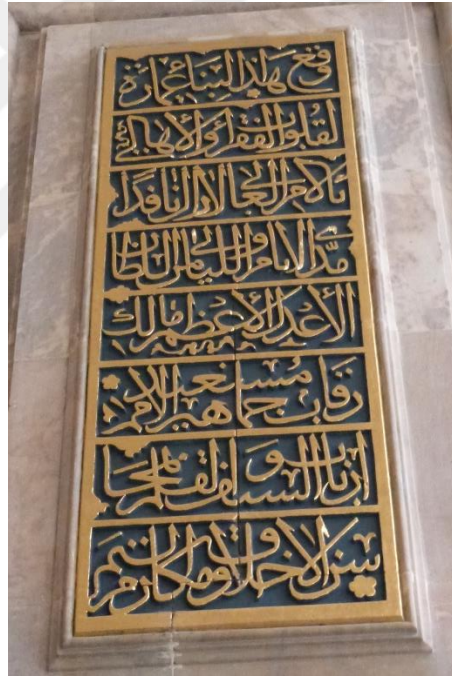 وقع هذا البنا عمارة
لقلوب الفقراء والأهالي
بالأمر العالي لازال نافذا
مدا الأيام والليالي من السلطان
الأعدل الأعظم مالك
رقاب جماهير الأمم مستعبد
ارباب السيف والقلم بمحا
سن الأخلاق ومكارم الشيم